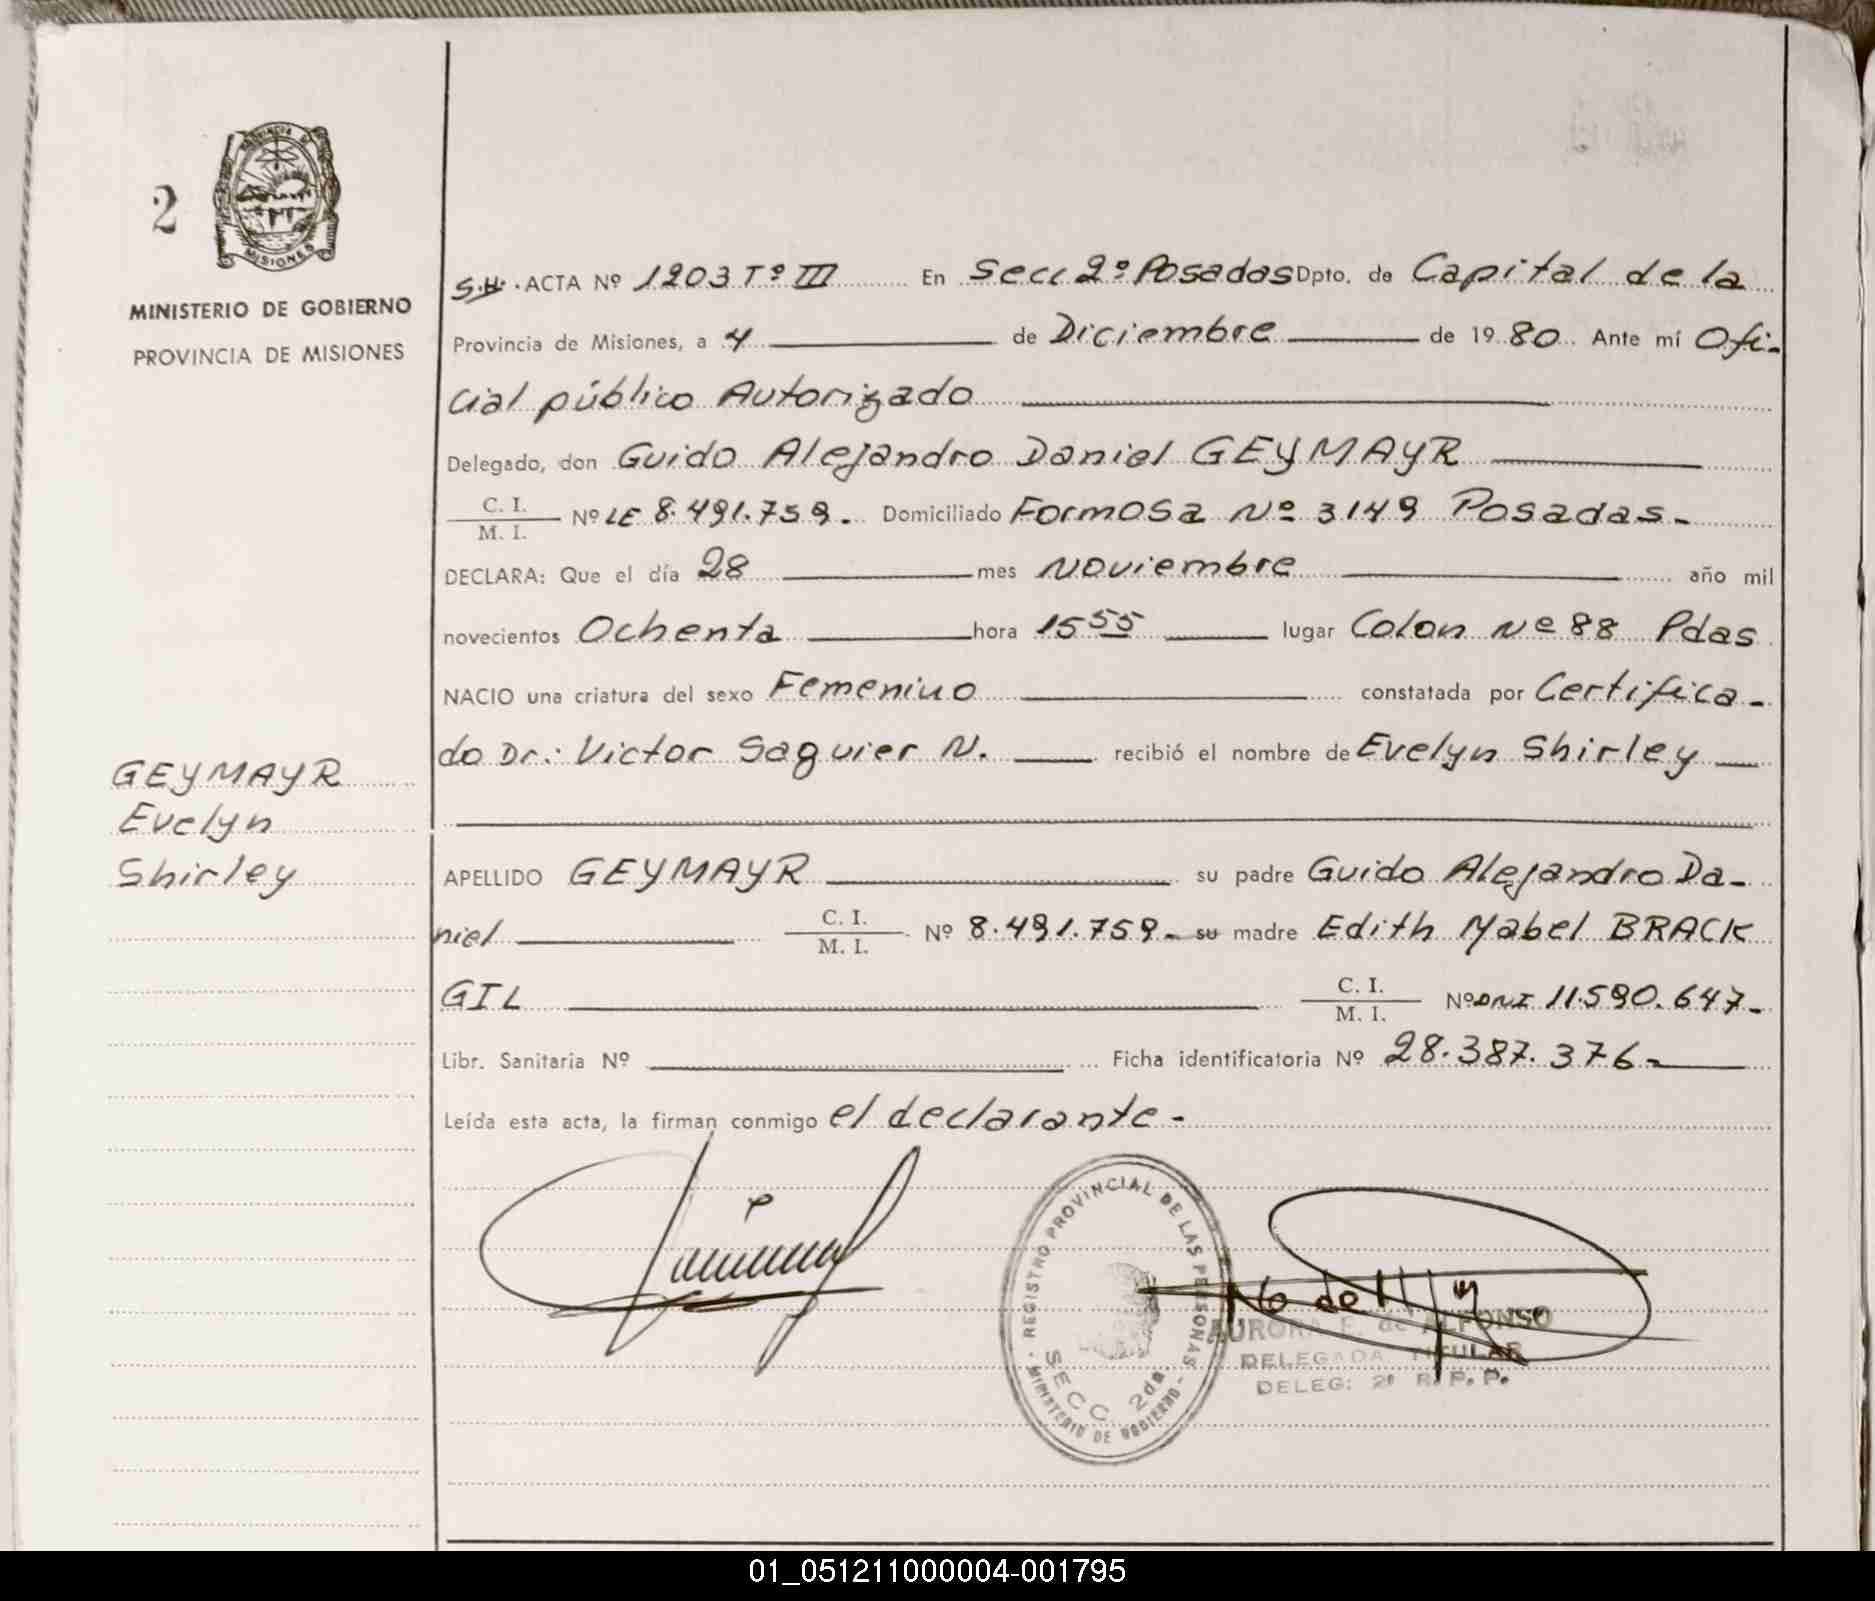 2
PROVINCIA DE
MISIONES
MINISTERIO DE GOBIERNO
PROVINCIA DE MISIONES
GEYMAYR
Evelyn
Shirley
S.H. ACTA Nº 1203 Tº III En Secc 2º Posadas Dpto. de Capital de la
Provincia de Misiones, a 4 de Diciembre de 1980. Ante mí Ofi-
cial público Autorizado
Delegado, don Guido Alejandro Daniel GEYMAYR
C. I.
M. I. Nº LE 8.491.759. Domiciliado Formosa Nº 3149 Posadas-
DECLARA: Que el día 28 mes Noviembre año mil
novecientos Ochenta hora 15 55 lugar Colon Nº 88 Pdas
NACIO una criatura del sexo Femenino constatada por Certifica-
do Dr: Victor Saguier N. recibió el nombre de Evelyn Shirley
APELLIDO GEYMAYR su padre Guido Alejandro Da-
niel C. I.
M. I. Nº 8.491.759- su madre Edith Mabel BRACK
GIL C. I.
M. I. Nº DNI 11.590.647-
Libr. Sanitaria Nº Ficha identificatoria Nº 28.387.376-
Leída esta acta, la firman conmigo el declarante-
REGISTRO PROVINCIAL DE LAS PERSONAS
SECC 2da
MINISTERIO DE GOBIERNO
AURORA F. de ALFONSO
DELEGADA TITULAR
DELEG: 2ª R. P. P.
01_051211000004-001795